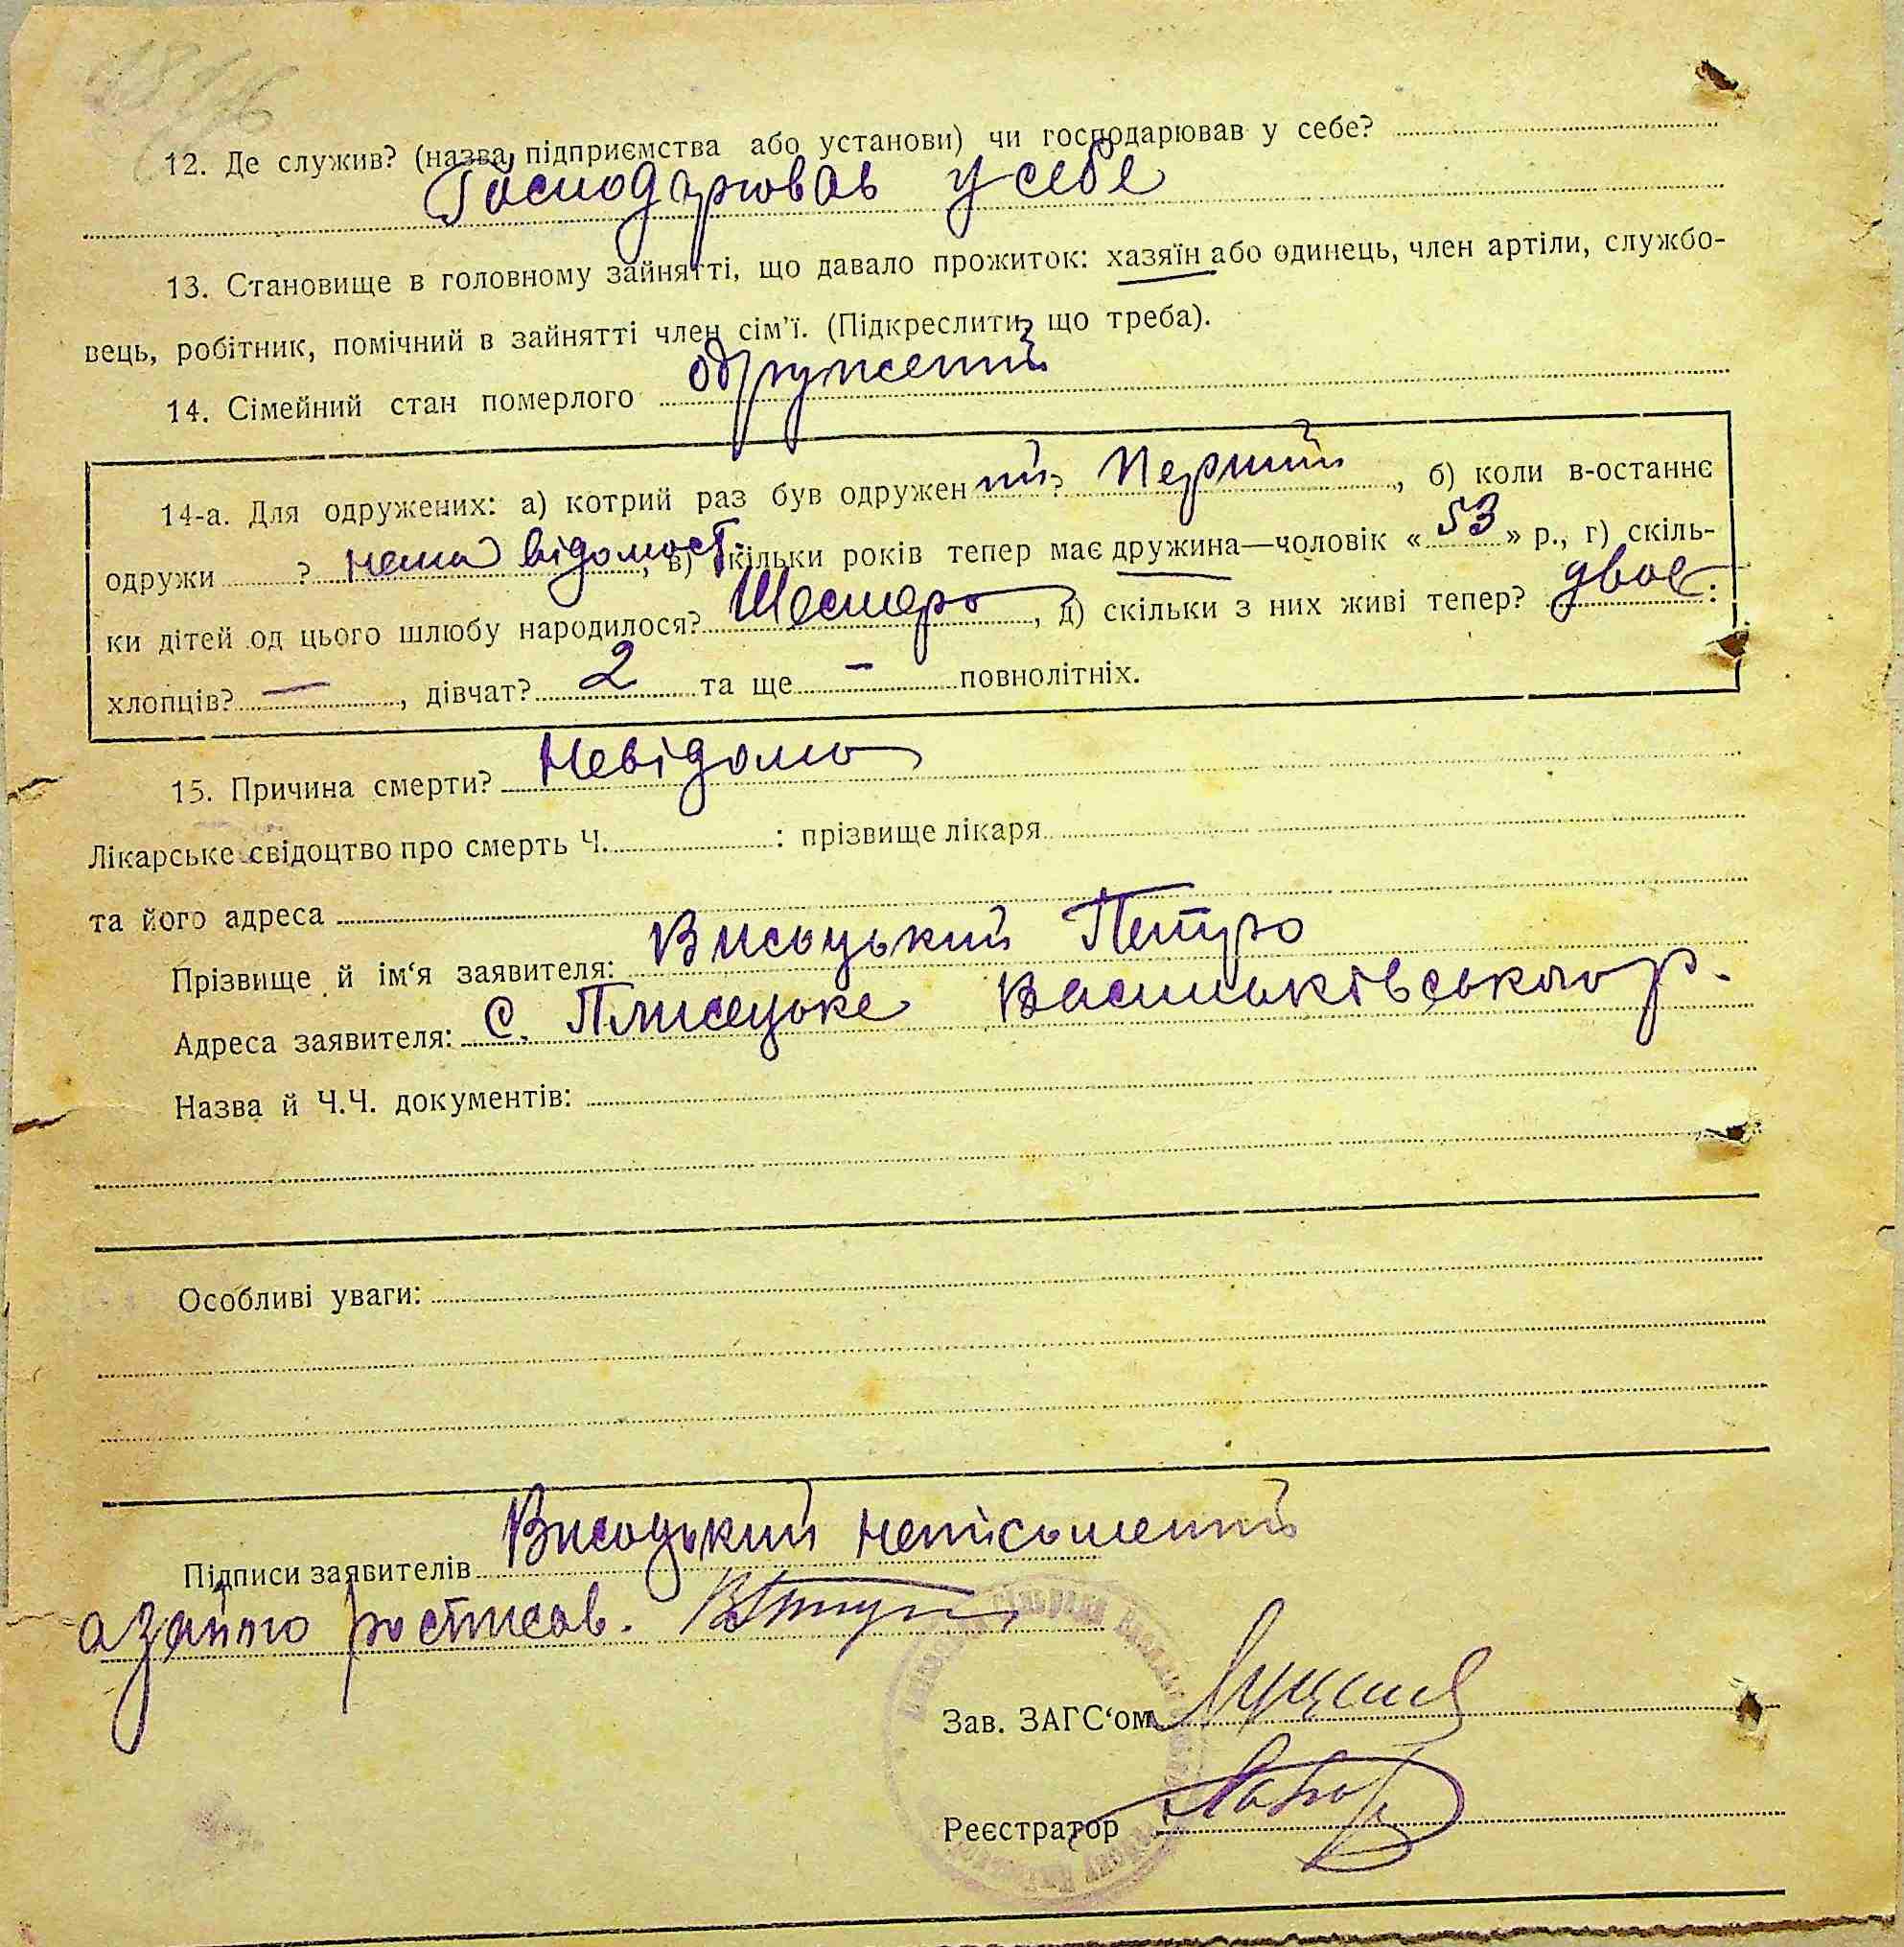 12. Де служив? (назва підприємства або установи) чи господарював у себе?
Господарював у себе
13. Становище в головному зайнятті, що давало прожиток: хазяїн або одинець, член артіли, службо-
вець, робітник, помічний в зайнятті член сім'ї. (Підкреслити, що треба).
14. Сімейний стан померлого одружений
14-а. Для одружених: а) котрий раз був одружен ий? Перший, б) коли в-останнє
одружи ? нема відомост., в) скільки років тепер має дружина—чоловік « 53 » р., г) скіль-
ки дітей од цього шлюбу народилося? Шестеро, д) скільки з них живі тепер? двое:
хлопців? —, дівчат? 2 та ще — повнолітніх.
15. Причина смерти? Невідомо
Лікарське свідоцтво про смерть Ч. : прізвище лікаря
та його адреса
Прізвище й ім'я заявителя: Висоцький Петро
Адреса заявителя: с. Плисецьке Васильківського р.
Назва й Ч.Ч. документів:
Особливі уваги:
Підписи заявителів Висоцький неписьмений
а за нього росписав.
Зав. ЗАГС'ом
Реєстратор